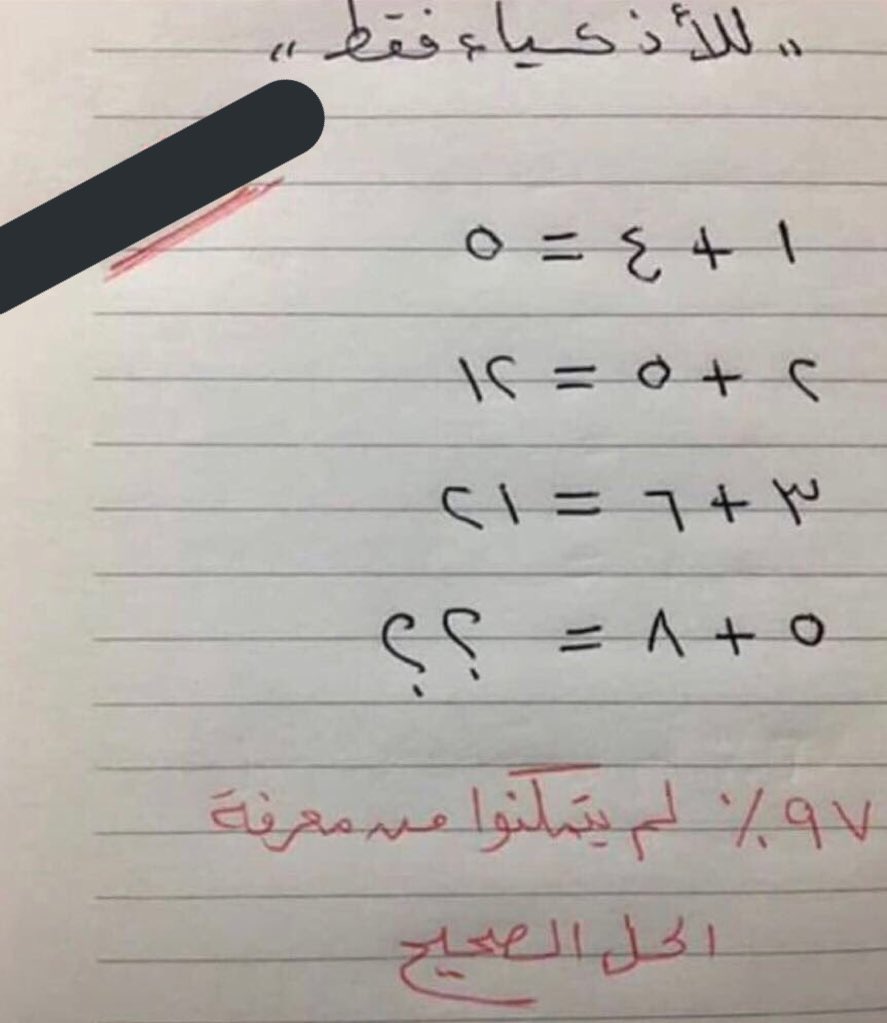 "للأذكياء فقط"
١ + ٤ = ٥
٢ + ٥ = ١٢
٣ + ٦ = ٢١
٥ + ٨ = ؟؟
٩٧٪ لم يتمكنوا من معرفة
الحل الصحيح